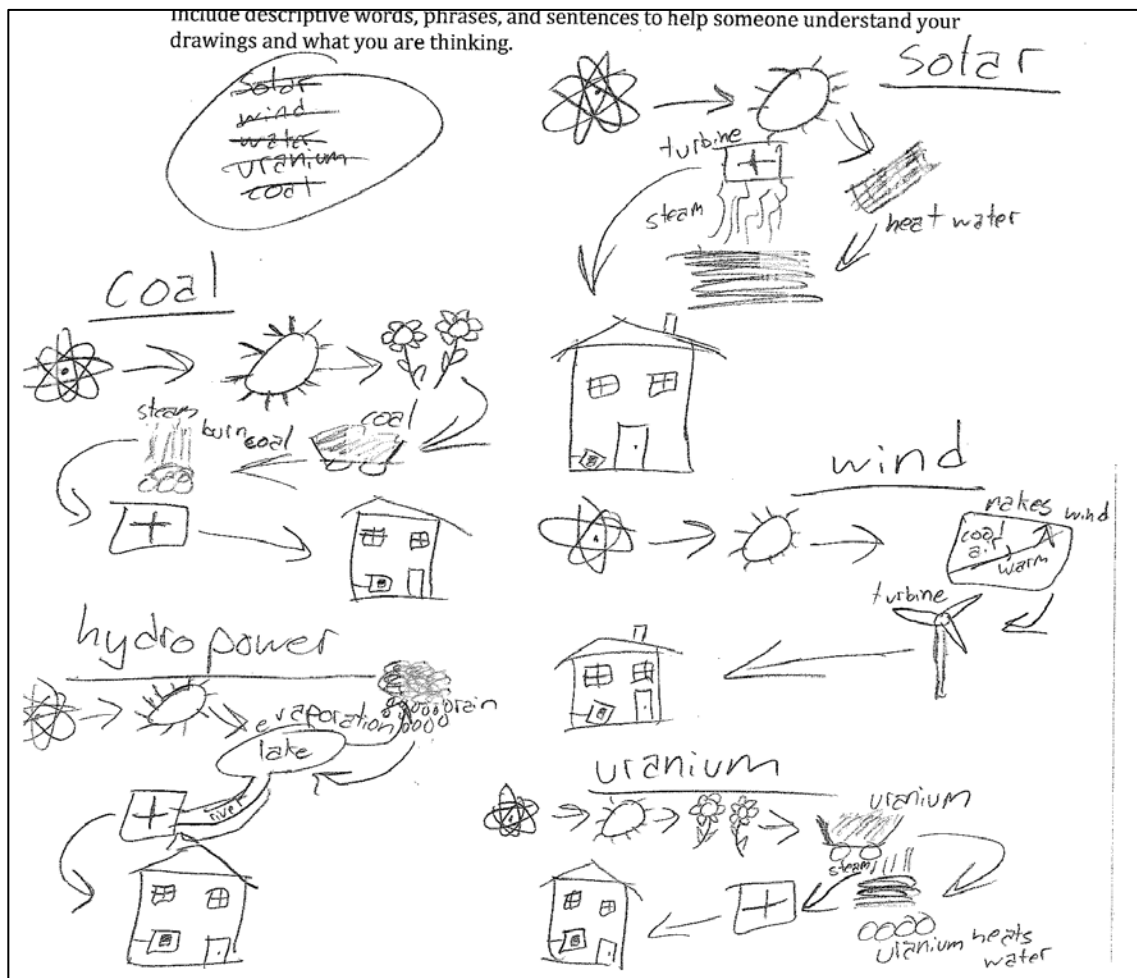 include descriptive words, phrases, and sentences to help someone understand your
drawings and what you are thinking.
solar
wind
water
uranium
coal
solar
turbine
steam
heat water
coal
steam
burn coal
coal
wind
makes wind
cold
air
warm
turbine
hydro power
evaporation
rain
lake
river
uranium
uranium
steam
uranium heats
water